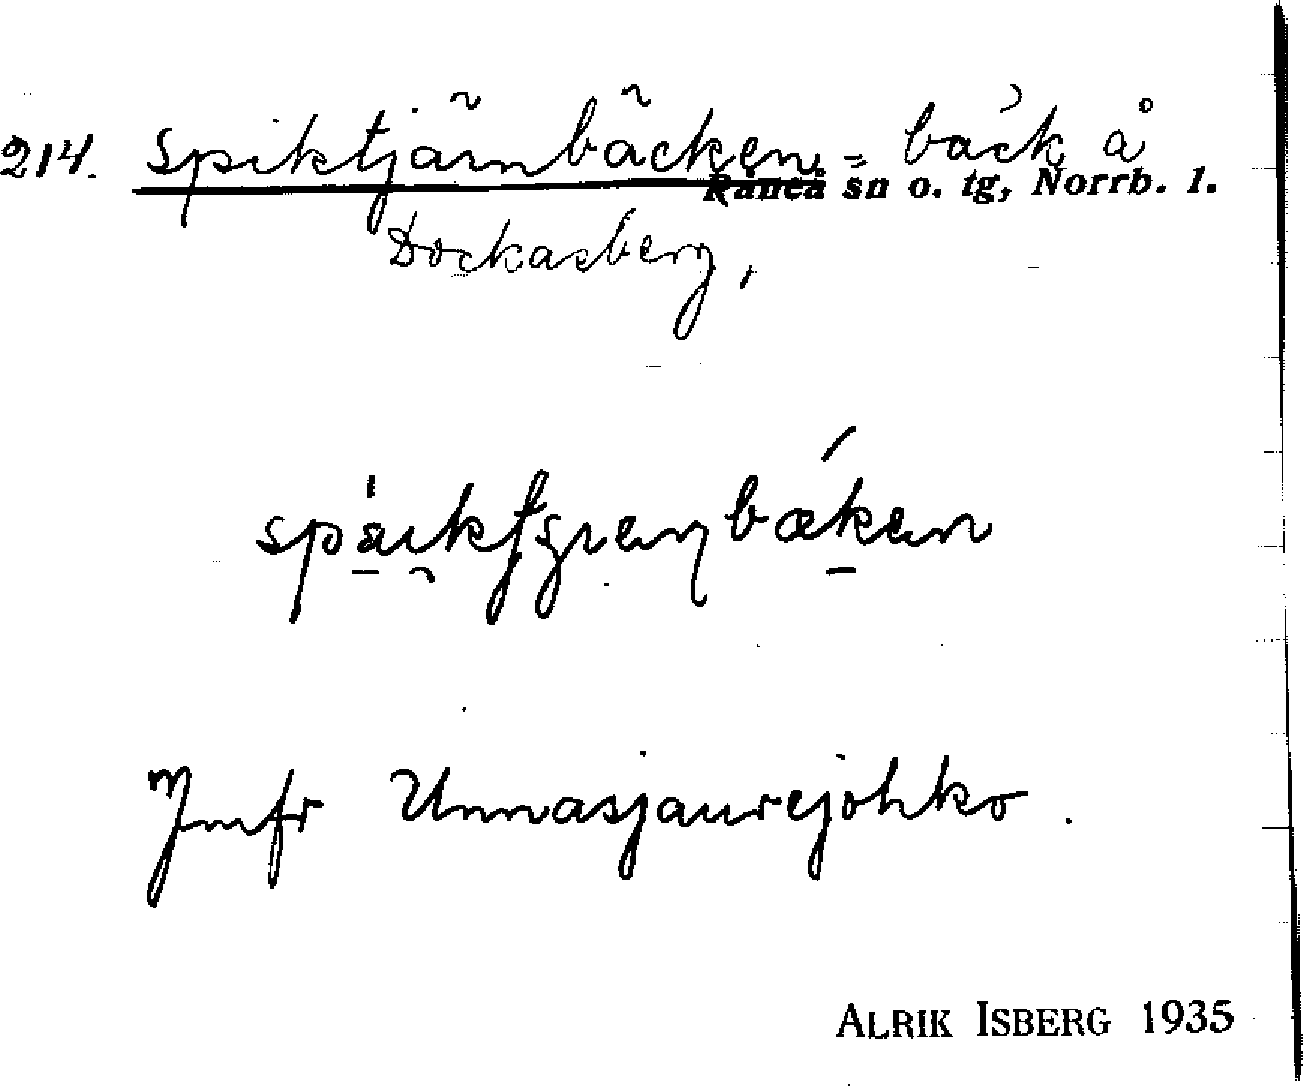 214. Spiktjärnbäcken = bäck å
Råneå sn o. tg, Norrb. l.
Dockasberg,
Jmfr Unnasjaurejohko.
ALRIK ISBERG 1935